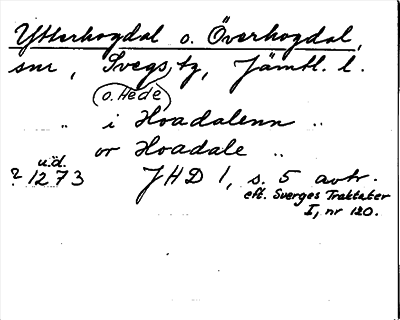 Ytterhogdal o. Överhogdal,
snr, Svegs tg, Jämtl. l.
o. Hede
" i Hoadalenn "
or Hoadale "
u.d.
? 1273 JHD 1, s. 5 avtr.
eft. Sverges Traktater
I, nr 120.